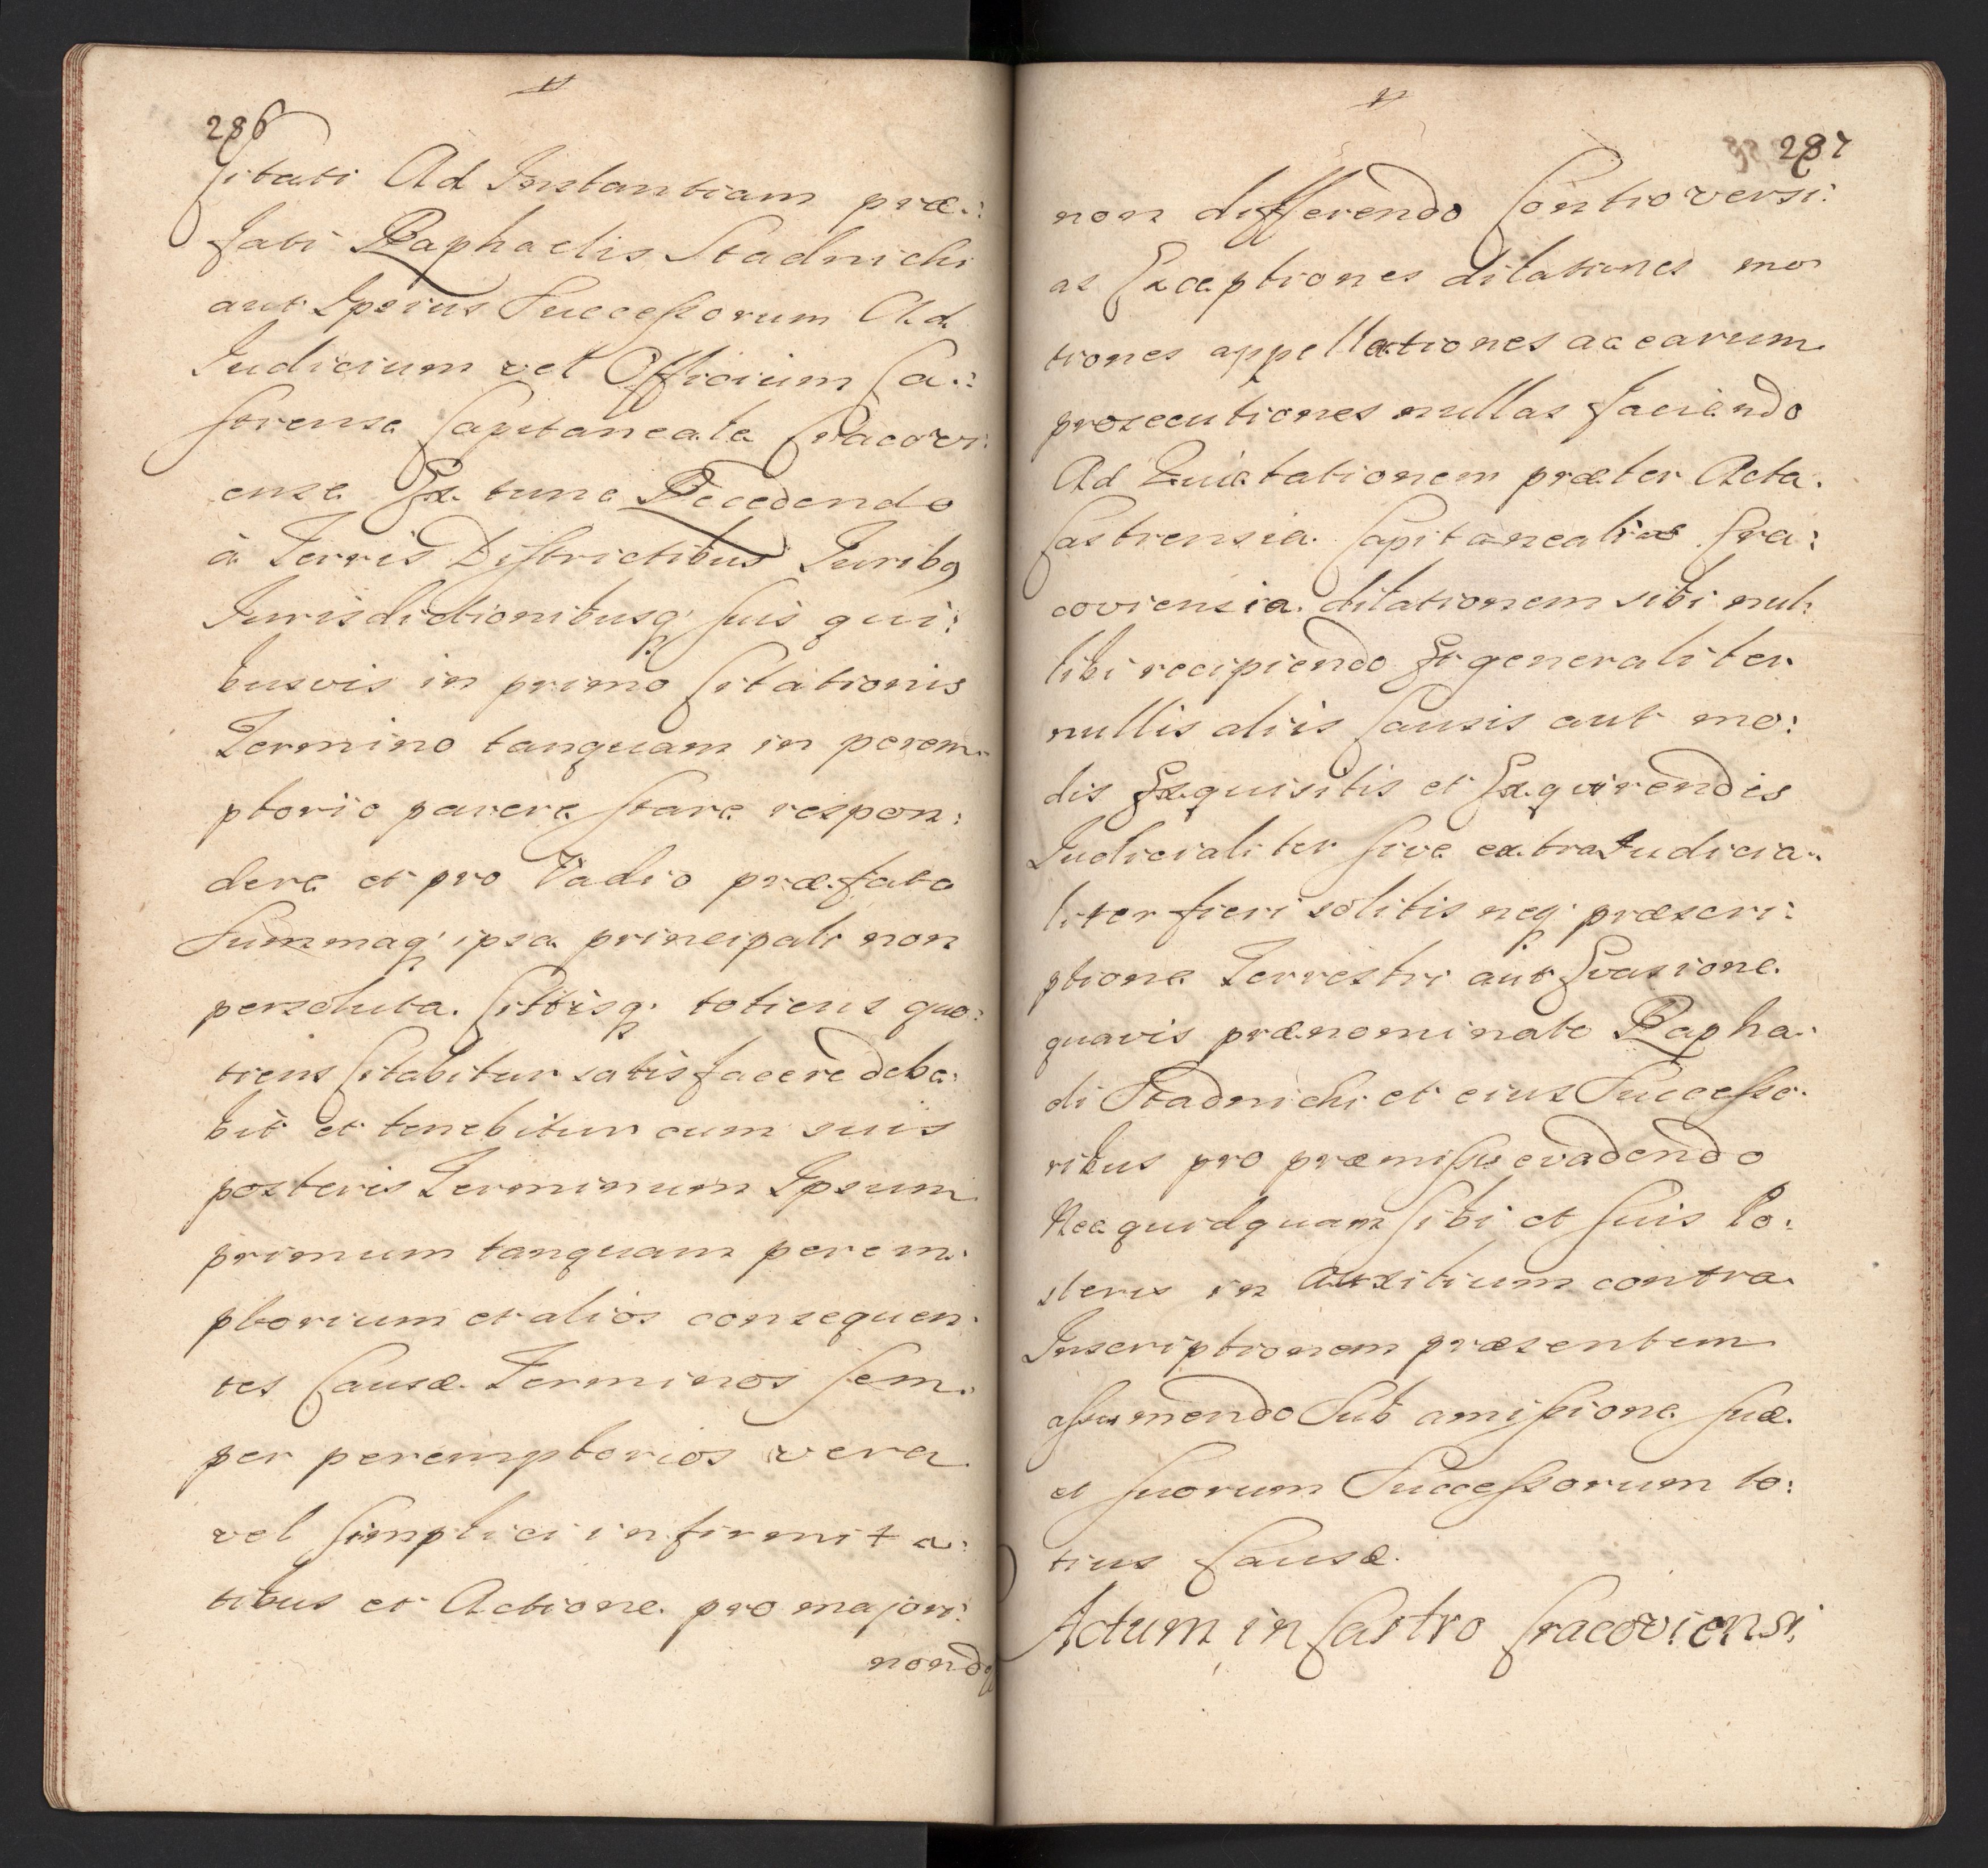 286
Citati Ad Instantiam præ:
fati Raphaelis Stadnicki
aut Ipsius Successorum Ad
Judicium vel Officium Ca:
strense Capitaneale Cracovi:
ense Ex tunc Recedendo
à Terris Districtibus Juribq
Jurisdictionibusq suis qui:
busvis in primo Citationis
Termino tanquam in perem:
ptorio parere stare respon:
dere et pro Vadio præfato
Summaq ipsa principali non
persoluta. Cittisq totiens quo:
tiens Citabitur satisfacere debe:
bit et tenebitur cum suis
posteris Terminum Ipsum
primum tanquam perem:
ptorium et alios consequen:
tes Causæ Terminos sem:
per peremptorios vera
vel simplici infirmita:
tibus et Actione pro majori:
non dq
287
non differendo Controversi:
as Exceptiones dilationes mo
tiones appellationes ac earum
prosecutiones nullas faciendo
Ad Quietationem præter Acta
Castrensia Capitanealia Cra:
coviensia dilationem sibi nul:
libi recipiendo Et generaliter
nullis aliis Causis aut mo:
dis Exquisitis et Exquirendis
Judicialiter sive extra Judicia:
liter fieri solitis neq præscri:
ptione Terrestri aut Evasione
quavis prænominato Rapha:
eli Stadnicki et eius Successo:
ribus pro præmissis evadendo
Nec quidquam sibi et suis Po:
steris in Auxilium contra
Inscriptionem præsentem
assumendo Sub amissione suæ
et suorum Successorum to:
tius Causæ.
Actum in Castro Cracoviensi